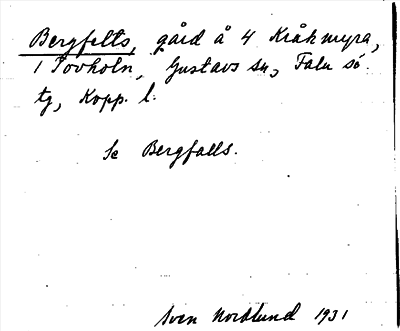 Bergfelts, gård å 4 Kråkmyra,
1 Sovholn, Gustavs sn, Falu sö.
tg, Kopp. l.
Se Bergfalls.
Sven Nordlund 1931